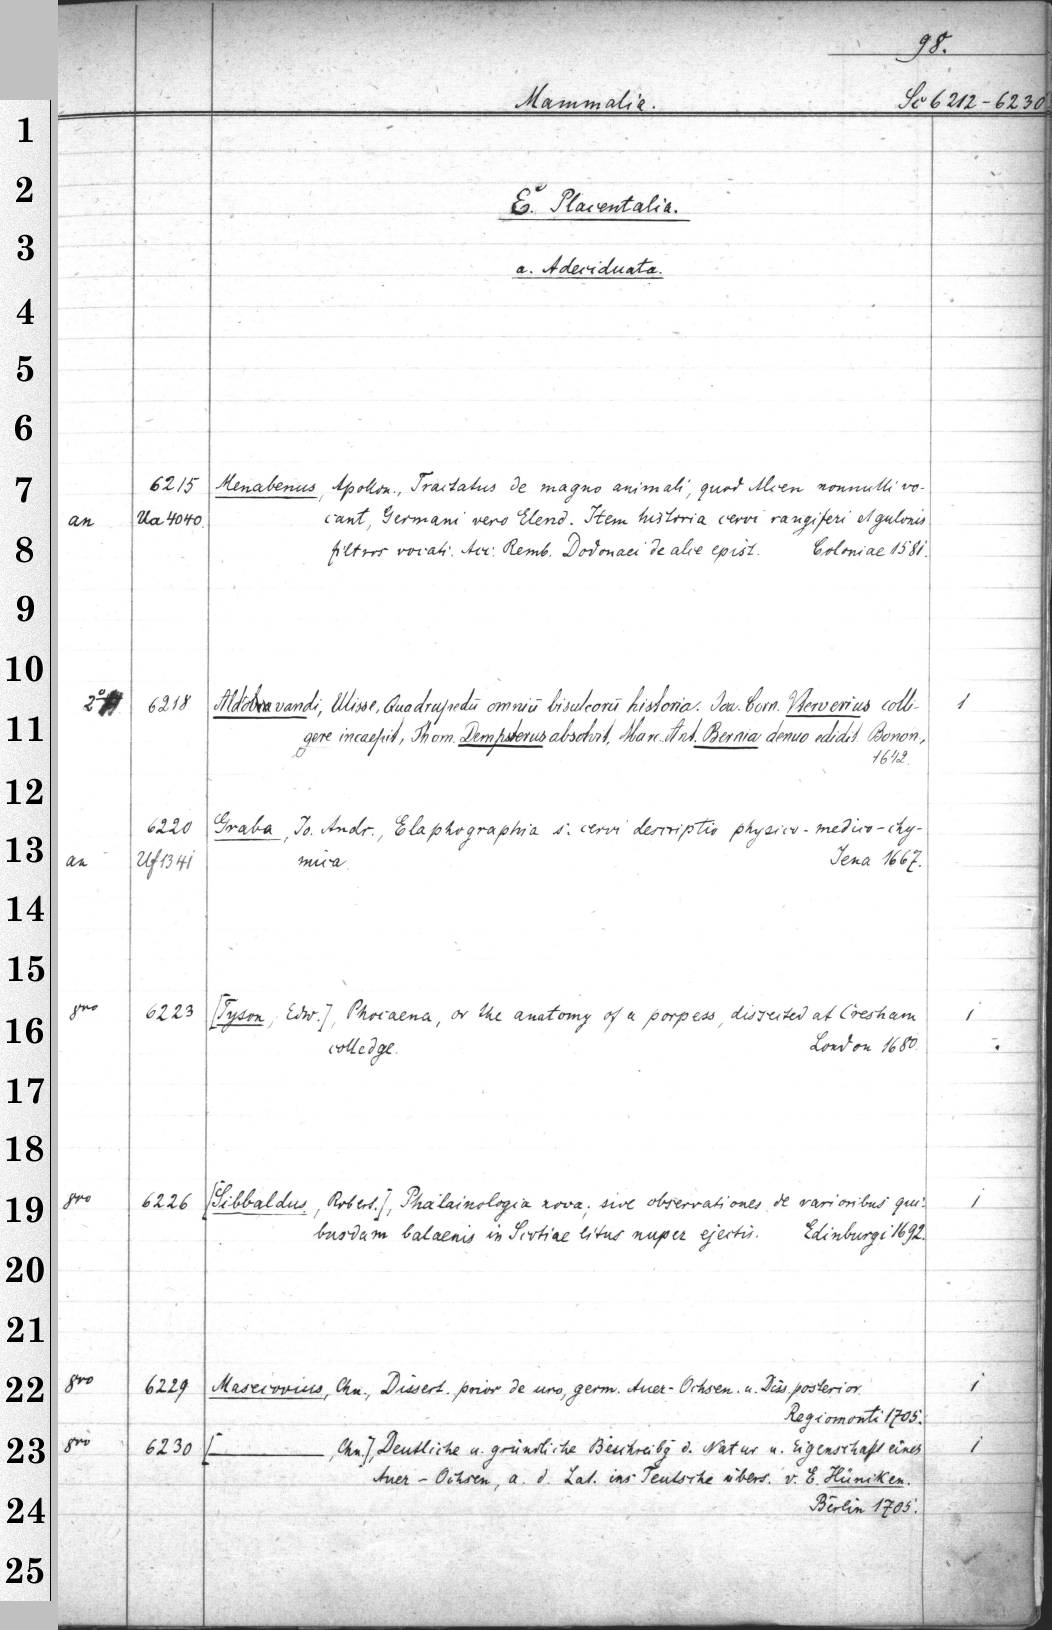 98.
Mammalia. Sc 6212-6230
1
2
E. Placentalia.
3
a. Adeciduata.
4
5
6
7
6215 Menabenus, Apollon., Tractatus de magno animali, quod Alcen nonnulli vo-
an Ua 4040 cant, Germani vero Elend. Item historia cervi rangiferi et gulonis
8
filfros vocati. Acc. Remb. Dodonaei de alce epist. Coloniae 1581.
9
10
2° 6218 Aldrovandi, Ulisse, Quadrupedū omniū bisulcorū historia. Joa. Corn. Uterverius colli- 1
11
gere incaepit, Thom. Dempsterus absolvit, Marc. Ant. Bernia denuo edidit Bonon,
1642.
12
6220 Graba, Jo. Andr., Elaphographia s. cervi descriptio physico-medico-chy-
13
an Uf 1341 mica. Jena 1667.
14
15
8vo 6223 [Tyson, Edw.], Phocaena, or the anatomy of a porpess, dissected at Gresham 1
16
colledge. London 1680.
17
18
19
8vo 6226 [Sibbaldus, Robert.], Phalainologia nova, sive observationes de varioribus qui- 1
busdam balaenis in Scotiae litus nuper ejectis. Edinburgi 1692.
20
21
22
8vo 6229 Mascovius, Chn., Dissert. prior de uro, germ. Auer-Ochsen. u. Diss. posterior. 1
Regiomonti 1705.
23
8vo 6230 [———, Chn.], Deutliche u. gründliche Beschreibg d. Natur u. Eigenschaft eines 1
Auer-Ochsen, a. d. Lat. ins Teutsche übers. v. E. Hüniken.
24
Berlin 1705.
25